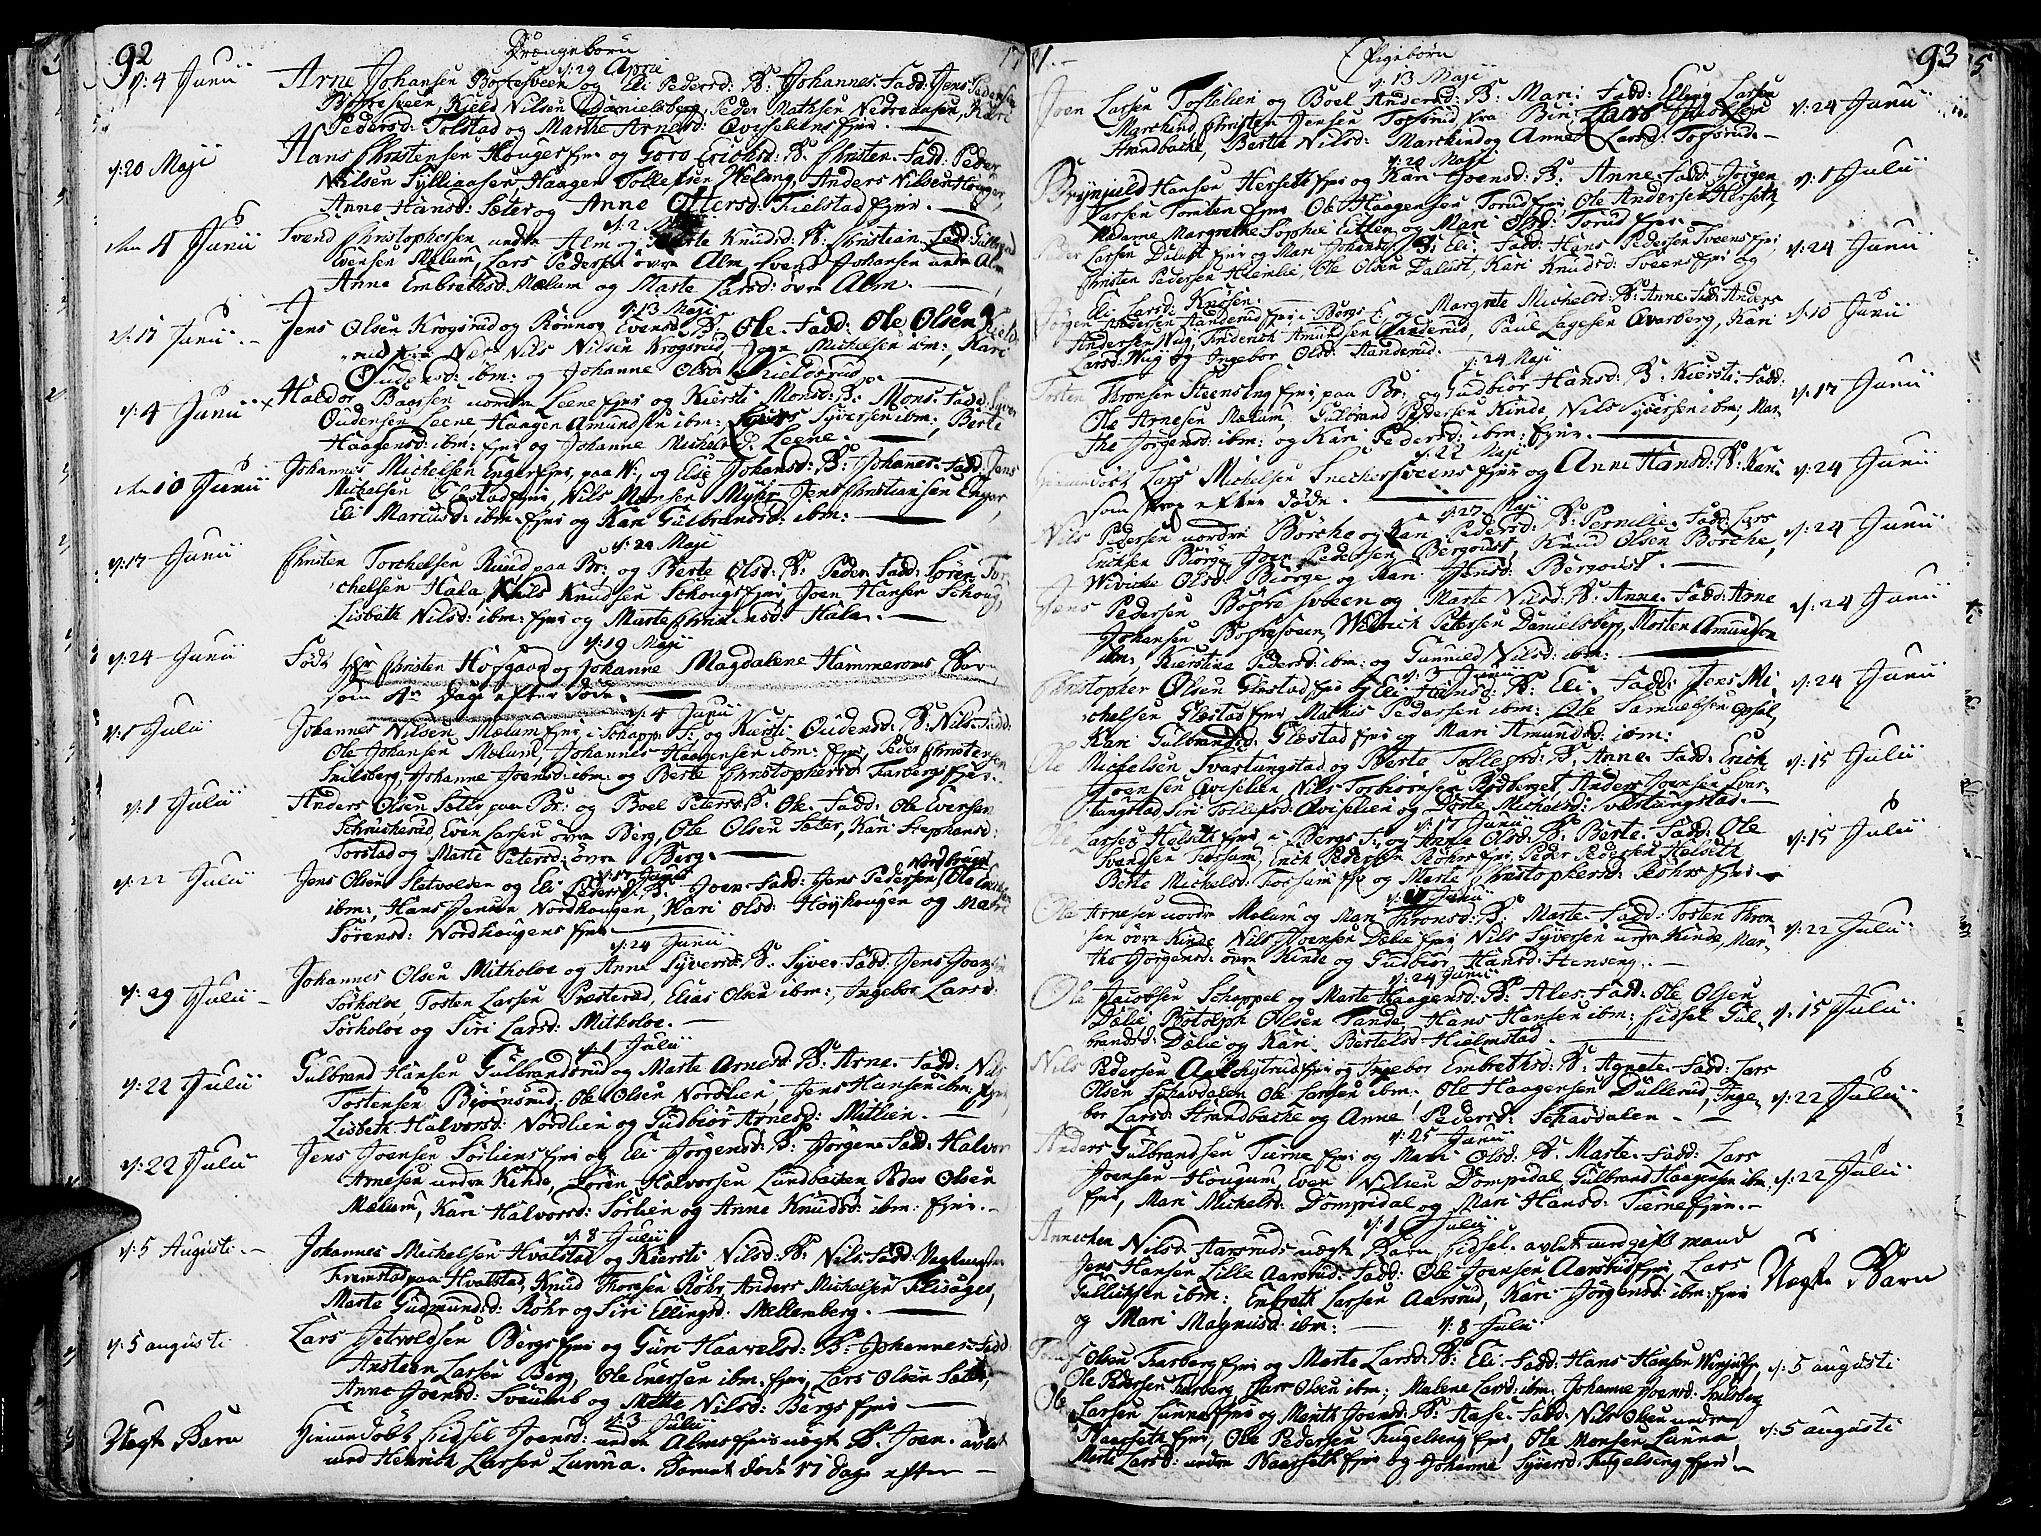 92
Drengebørn
d: 29 April
d: 4 Junii
Arne Johansen Bøfresveen og Eli Pedersd: B: Johannes. Fadd: Jens Pedersen
Bøfresveen, Kield Nilsen Danielsberg, Peder Mathsen Nedreaasen, Kari
Pedersd: Tolstad og Marthe Arnesd: Qviselien
d: 20 Maji
Hans Christensen Houger og Goro Erichsd: B: Christen. Fadd: Peder
Nilsen Sylliaasen, Haagen Tollefsen Welang, Anders Nilsen Houger,
Anne Hansd: Sæter og Anne Ottersd: Fielstad
den 4 Junii
Svend Christophersen nedre Alm og Berte Knudsd: B: Christian. Fadd: Gulbrand
Ivensen Mælum, Lars Pedersen øvre Alm, Svend Johansen nedre Alm
Anne Embrethsd: Mælum og Marte Larsd: øvre Alm.
d: 13 Maji
d: 17 Junii
Jens Olsen Krogsrud og Rønnov Evensd: B: Ole. Fadd: Ole Olsen
Nils Nilsen Krogsrud, Joen Michelsen ibm:, Kari
Oudensd: ibm: og Johanne Olsd:
d: 4 Junii
Haldor Baarsen nordre Leene og Kiersti Monsd: B: Mons. Fadd: Syver
Oudensen Leene Haagen Amundsen ibm: Syversen ibm:, Berte
Haagensd: ibm: og Johanne Michelsd: Leene.
den 10 Junii
Johannes Michelsen Enger paa N:, og Elie Johansd: B: Johanes. Fadd: Jens
Michelsen Glæstad, Nils Monsen Myhr, Jens Christiansen Enger,
Eli Marcusd: ibm: og Kari Gulbrandsd: ibm:
d: 20 Maji
d: 17 Junii
Christen Torchelsen Ruud paa Br: og Berte Olsd: B: Peder. Fadd: Søren Tor
chelsen Hala, Nils Knudsen Schougs, Joen Hansen Schoug,
Lisbeth Nilsd: ibm: og Marte Christensd: Hala.
d: 19 Maji
d: 24 Junii
Født Hr Christen Hofgaar og Johanne Magdalene Hammeroms Barn
som 4de Dage efter døde.
d: 4 Junii
d: 1 Julii
Johannes Nilsen Mælum i Schapp: T: og Kiersti Oudensd: B: Nils. Fadd:
Ole Johansen Mælum, Johannes Haagensen ibm:, Peder Christensen
Snilsberg, Johanne Joensd: ibm: og Berte Christophersd: Farberg
d: 1 Julii
Anders Olsen Sætte paa Br: og Boel Petersd: B: Ole. Fadd: Ole Evensen
Schruckerud, Even Larsen øvre Berg, Ole Olsen Sæter, Kari Stephansd:
Torstad og Marte Petersd: øvre Berg.
d: 17 Junii
d: 22 Julii
Jens Olsen Sletvolden og Eli Pedersd: B: Joen. Fadd: Jens Pedersen
ibm:, Hans Jensen Nordhougen, Kari Olsd: Høyhougen og Mari
Sørensd: Nordhougens
d: 24 Junii
d: 29 Julii
Johannes Olsen Mitholoe og Anne Syversd: B: Syver. Fadd: Jens Joensen
Sørholoe, Tosten Larsen Præsterud, Elias Olsen ibm:, Ingebor Larsd:
Sørholoe og Siri Larsd: Mitholoe.
d: 1 Julii
d: 22 Julii
Gulbrand Hansen Gulbrandsrud og Marte Arnesd: B: Arne. Fadd: Nils
Tostensen Biørnsrud, Ole Olsen Nordlien, Jens Hansen ibm:,
Lisbeth Halvorsd: Nordlien og Gudbiør Arnesd: Mitlien.
d: 22 Julii
Jens Joensen Sørliens og Eli Jørgensd: B: Jørgen. Fadd: Halvor
Arnesen nedre Kinde, Søren Halvorsen Lundbacken Peder Olsen
Mælum, Kari Halvorsd: Sørlien og Anne Knudsd: ibm:
d: 8 Julii
d: 5 Augusti
Johannes Michelsen Hvalstad og Kiersti Nilsd: B: Nils. Fadd:
Fremstad paa Hvalstad, Knud Thoresen Røhr, Anders Michelsen Flisager,
Marte Gudmundsd: Røhr og Siri Ellingsd: Mellemberg.
d: 5 augusti
Lars Jetvoldsen Bergs og Guri Haavelsd: B: Johannes. Fadd:
Ansteen Larsen Berg, Ole Enersen ibm:, Lars Olsen Sætte,
Anne Joensd: Sveum og Mette Nilsd: Bergs
d: 3 Julii
Uægte Barn
Hiemmedøbt Sidsel Joensd: nedre Alms uægte B. Joen. avlet
med Henrich Larsen Lunna. Barnet døde 17 dage efter
93
Pigebørn
d: 13 Maji
Joen Larsen Toftelien og Boel Andersd: B: Mari. Fadd: Elling Larsen
Marckind, Christen Jensen Topsrud fra Biri
Strandbacke, Berte Nilsd: Marckind og Anne Larsd: Topsrud.
d: 24 Junii
d: 20 Maji
Brynjuld Hansen Herseth og Kari Joensd: B: Anne. Fadd: Jørgen
Larsen Tomten, Ole Haagensen Torud, Ole Andersen Herseth,
Madame Margrethe Sophie Eitten og Mari Olsd: Torud
d: 1 Julii
Peder Larsen Dalust og Mari Johansd: B: Eli. Fadd: Hans Pedersen Sveens
Christen Pedersen Heimlie, Ole Olsen Dalust, Kari Knudsd: Sveens og
Eli Larsd: Knosen.
d: 24 Junii
Jørgen Andersen Aanderud i Bergs T: og Margrete Michelsd: B: Anne. Fadd: Anders
Andersen Nuy, Friderich Amundsen Aanderud, Paul Lagesen Qvarberg, Kari
Larsd: Nuy og Ingebor Olsd: Aanderud.
d: 10 Junii
d: 24 Maji
Tosten Thronsen Steens Eng paa Br: og Gudbiør Hansd: B: Kiersti. Fadd:
Ole Arnesen Mælum, Gulbrand Pedersen Kinde, Nils Syversen ibm:, Mar-
the Jørgensd: ibm: og Kari Pedersd: ibm:
d: 17 Junii
d: 22 Maji
Hiemmedøbt Lars Michelsen Sneckersveens og Anne Hansd: B: Kari
som strax efter døde.
d: 24 Junii
d: 27 Maji
Nils Pedersen nordre Børche og Kari Pedersd: B: Pernille. Fadd: Lars
Erichsen Biørge, Joen Pedersen Bergqvist, Knud Olsen Børche,
Wiviche Olsd: Biørge og Kari Jensd: Bergqvist.
d: 24 Junii
Jens Pedersen Bøfresveen og Marte Nilsd: B: Anne. Fadd: Arne
Johansen Bøfresveen, Welbrich Petersen Danielsberg, Morten Amundsen
ibm:, Kierstine Pedersd: ibm: og Gunnild Nilsd: ibm:
d: 24 Junii
d: 3 Junii
Christopher Olsen Glæstad og Eli Hansd: B: Eli. Fadd: Jens Mi-
chelsen Glæstad, Mathis Pedersen ibm: Ole Samuelsen Opsal
Kari Gulbrandsd: Glæstad og Mari Amundsd: ibm:
d: 24 Junii
Ole Michelsen Svartungstad og Berte Tollefsd: B: Anne. Fadd: Erich
Joensen Qviselien Nils Torbiørnsen Rødberget, Anders Joensen Svar-
tungstad, Siri Tollefsd: Qviselien og Dorte Michelsd: Svartungstad.
d: 15 Julii
d: 17 Junii
Ole Larsen Helseth i Bergs T: og Anne Olsd: B: Berte. Fadd: Ole
Svendsen Fossum, Erich Pedersen Røhr, Peder Pedersen Helseth
Berte Michelsd: Fossum og Marte Christophersd: Røhrs
d: 15 Julii
d: 17 Junii
Ole Arnesen nordre Mælum og Mari Thronsd: B: Marte. Fadd: Tosten Thron
sen øvre Kinde Nils Joensen Dælie, Nils Syversen nedre Kinde, Mar-
the Jørgensd: øvre Kinde og Gudbiør Hansd: Steenseng.
d: 22 Julii
d: 24 Junii
Ole Jacobsen Schappel og Marte Haagensd: B: Ales. Fadd: Ole Olsen
Dælie, Botolph Olsen Tande, Hans Hansen ibm: Sidsel Gul-
brandsd: Dælie og Kari Bertelsd: Hielmstad.
d: 15 Julii
Nils Pedersen Aalchystrud og Ingebor Embrethsd: B: Agnete. Fadd: Lars
Olsen Schavdalen Ole Larsen ibm:, Ole Haagensen Dullerud, Inge-
bor Larsd: Strandbacke og Anne Pedersd: Schavdalen
d: 22 Julii
d: 25 Junii
Anders Gulbrandsen Tierne og Mari Olsd: B: Marte. Fadd: Lars
Joensen Hougum, Even Nilsen Dompidal, Gulbrand Haagensen ibm:
Mari Michelsd: Dompidal og Mari Hansd: Tierne
d: 22 Julii
d: 1 Julii
Annichen Nilsd: Aarsruds uægte Barn Sidsel. avlet med gift mand
Jens Hansen Lille Aarsrud. Fadd: Ole Joensen Aarsrud, Lars
Gullichsen ibm:, Embreth Larsen Aarsrud, Kari Jørgensd: ibm:
og Mari Magnusd: ibm:
Uægte Barn
d: 8 Julii
Olsen Farberg og Marte Larsd: B: Eli. Fadd: Hans Hansen Winju,
Ole Pedersen Farberg, Lars Olsen ibm:, Malene Larsd: ibm:, Johanne Joensd: Snilsberg
d: 5 augusti
Ole Larsen Lunna og Marith Joensd: B: Aase. Fadd: Nils Olsen nedre
Naarseth, Ole Pedersen Kugelseng, Ole Monsen Lunna,
Marte Larsd: nedre Naarseth og Johanne Syversd: Kugelseng
d: 5 augusti